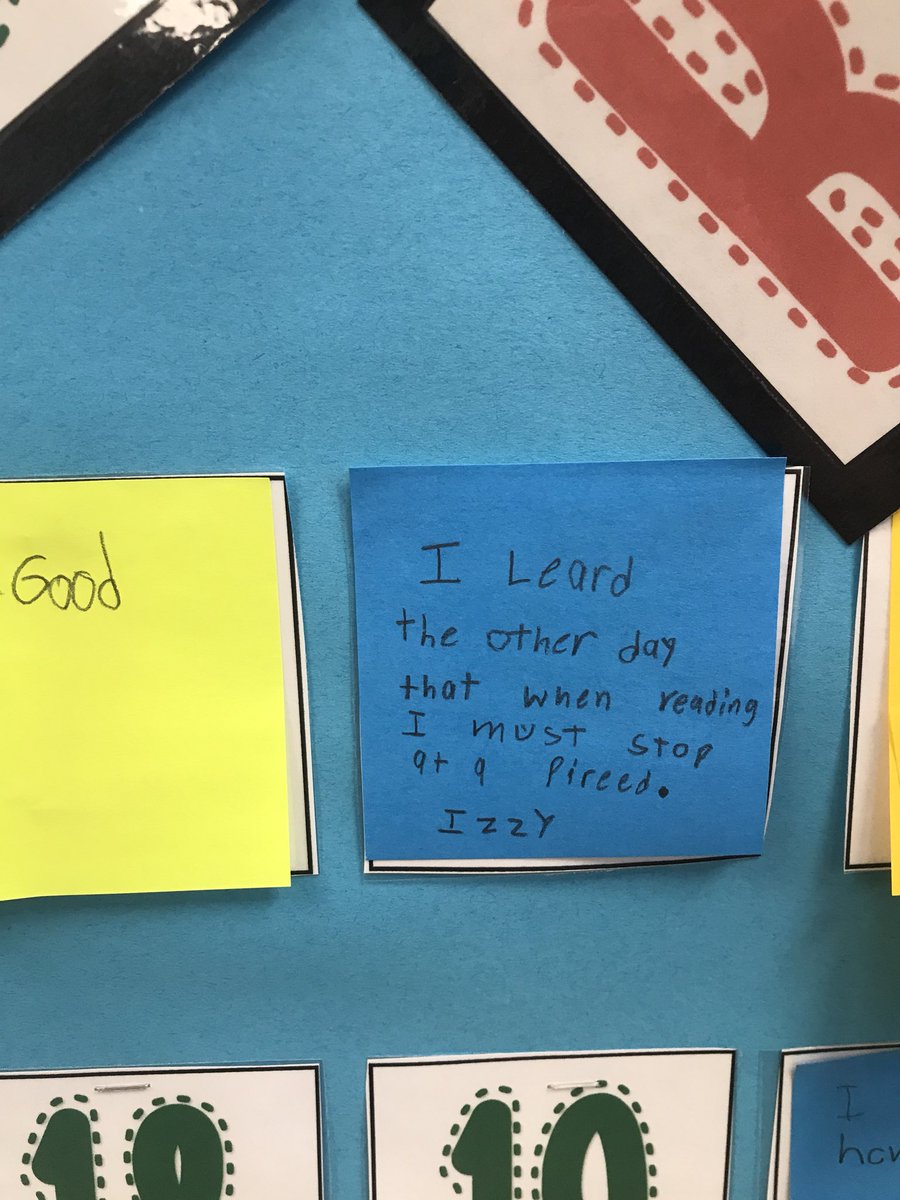 Good
I Leard
the other day
that when reading
I must stop
at a Pireed.
Izzy
10
I